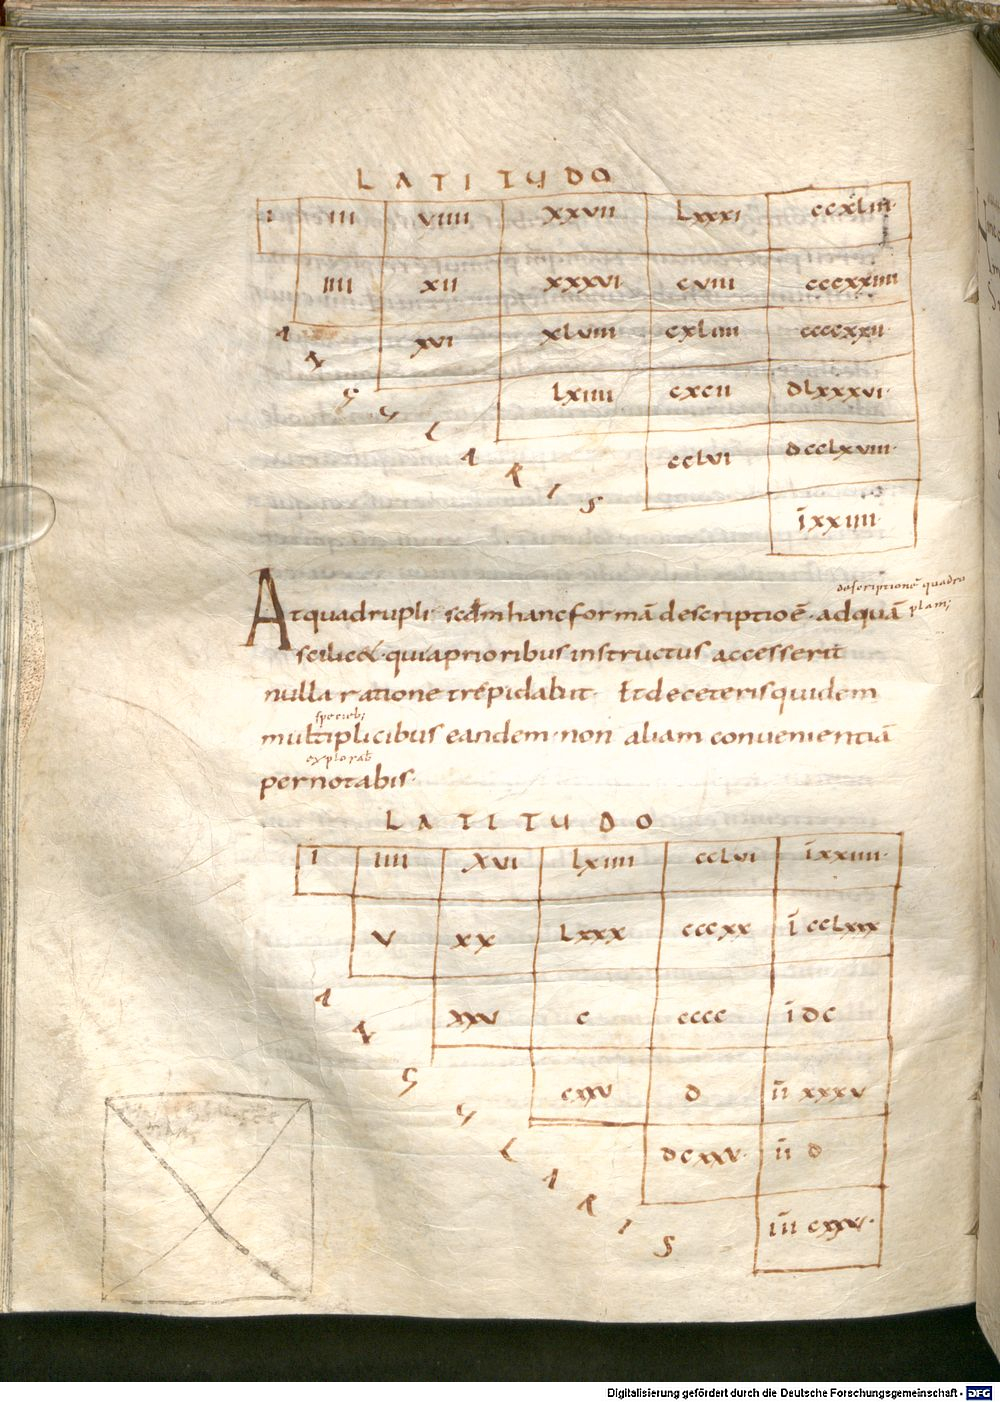 LATITUDO
I III VIIII XXVII LXXXI CCXLIII·
IIII XII XXXVI CVIII CCCXXIIII
XVI XLVIII CXLIIII CCCCXXII·
LXIIII CXCII DLXXXVI·
CCLVI DCCLXVIII·
ĪXXIIII·
descriptionē quadru
plam;
At quadrupli sed̄m hanc formā descriptioē· ad quā
scilicet· qui a prioribus instructus accesserit
nulla ratione trepidabit· Et de ceteris quidem
speciebꝫ
multiplicibus eandem· non aliam convenientiā
explorab̄
pernotabis·
LATITUDO
I IIII XVI LXIIII CCLVI ĪXXIIII·
V XX LXXX CCCXX Ī CCLXXX
XXV C CCCC Ī DC
CXXV D ĪĪ XXXXV
DCXXV· ĪĪ D
ĪĪĪ CXXV·
Digitalisierung gefördert durch die Deutsche Forschungsgemeinschaft - DFG